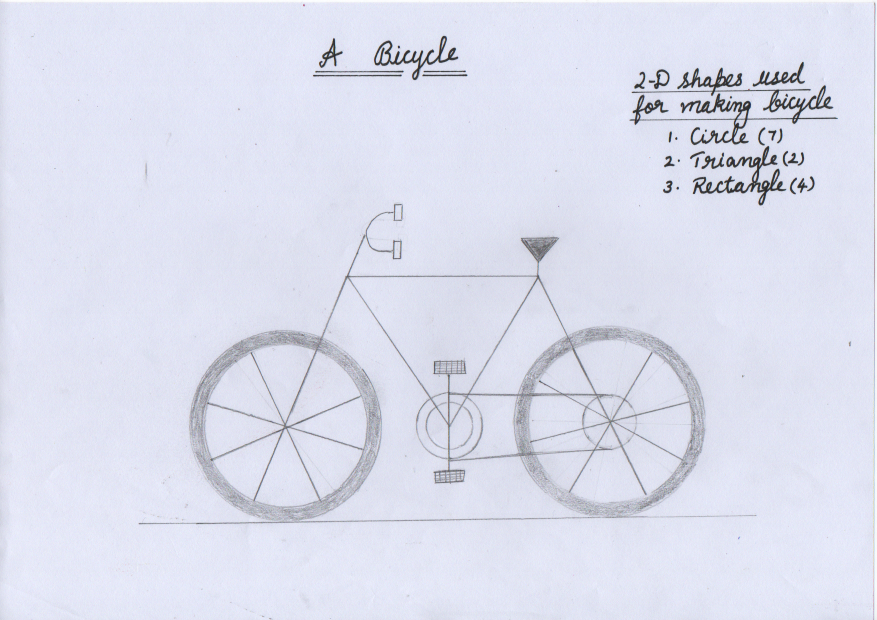 A Bicycle
2-D shapes used
for making bicycle
1. Circle (7)
2. Triangle (2)
3. Rectangle (4)